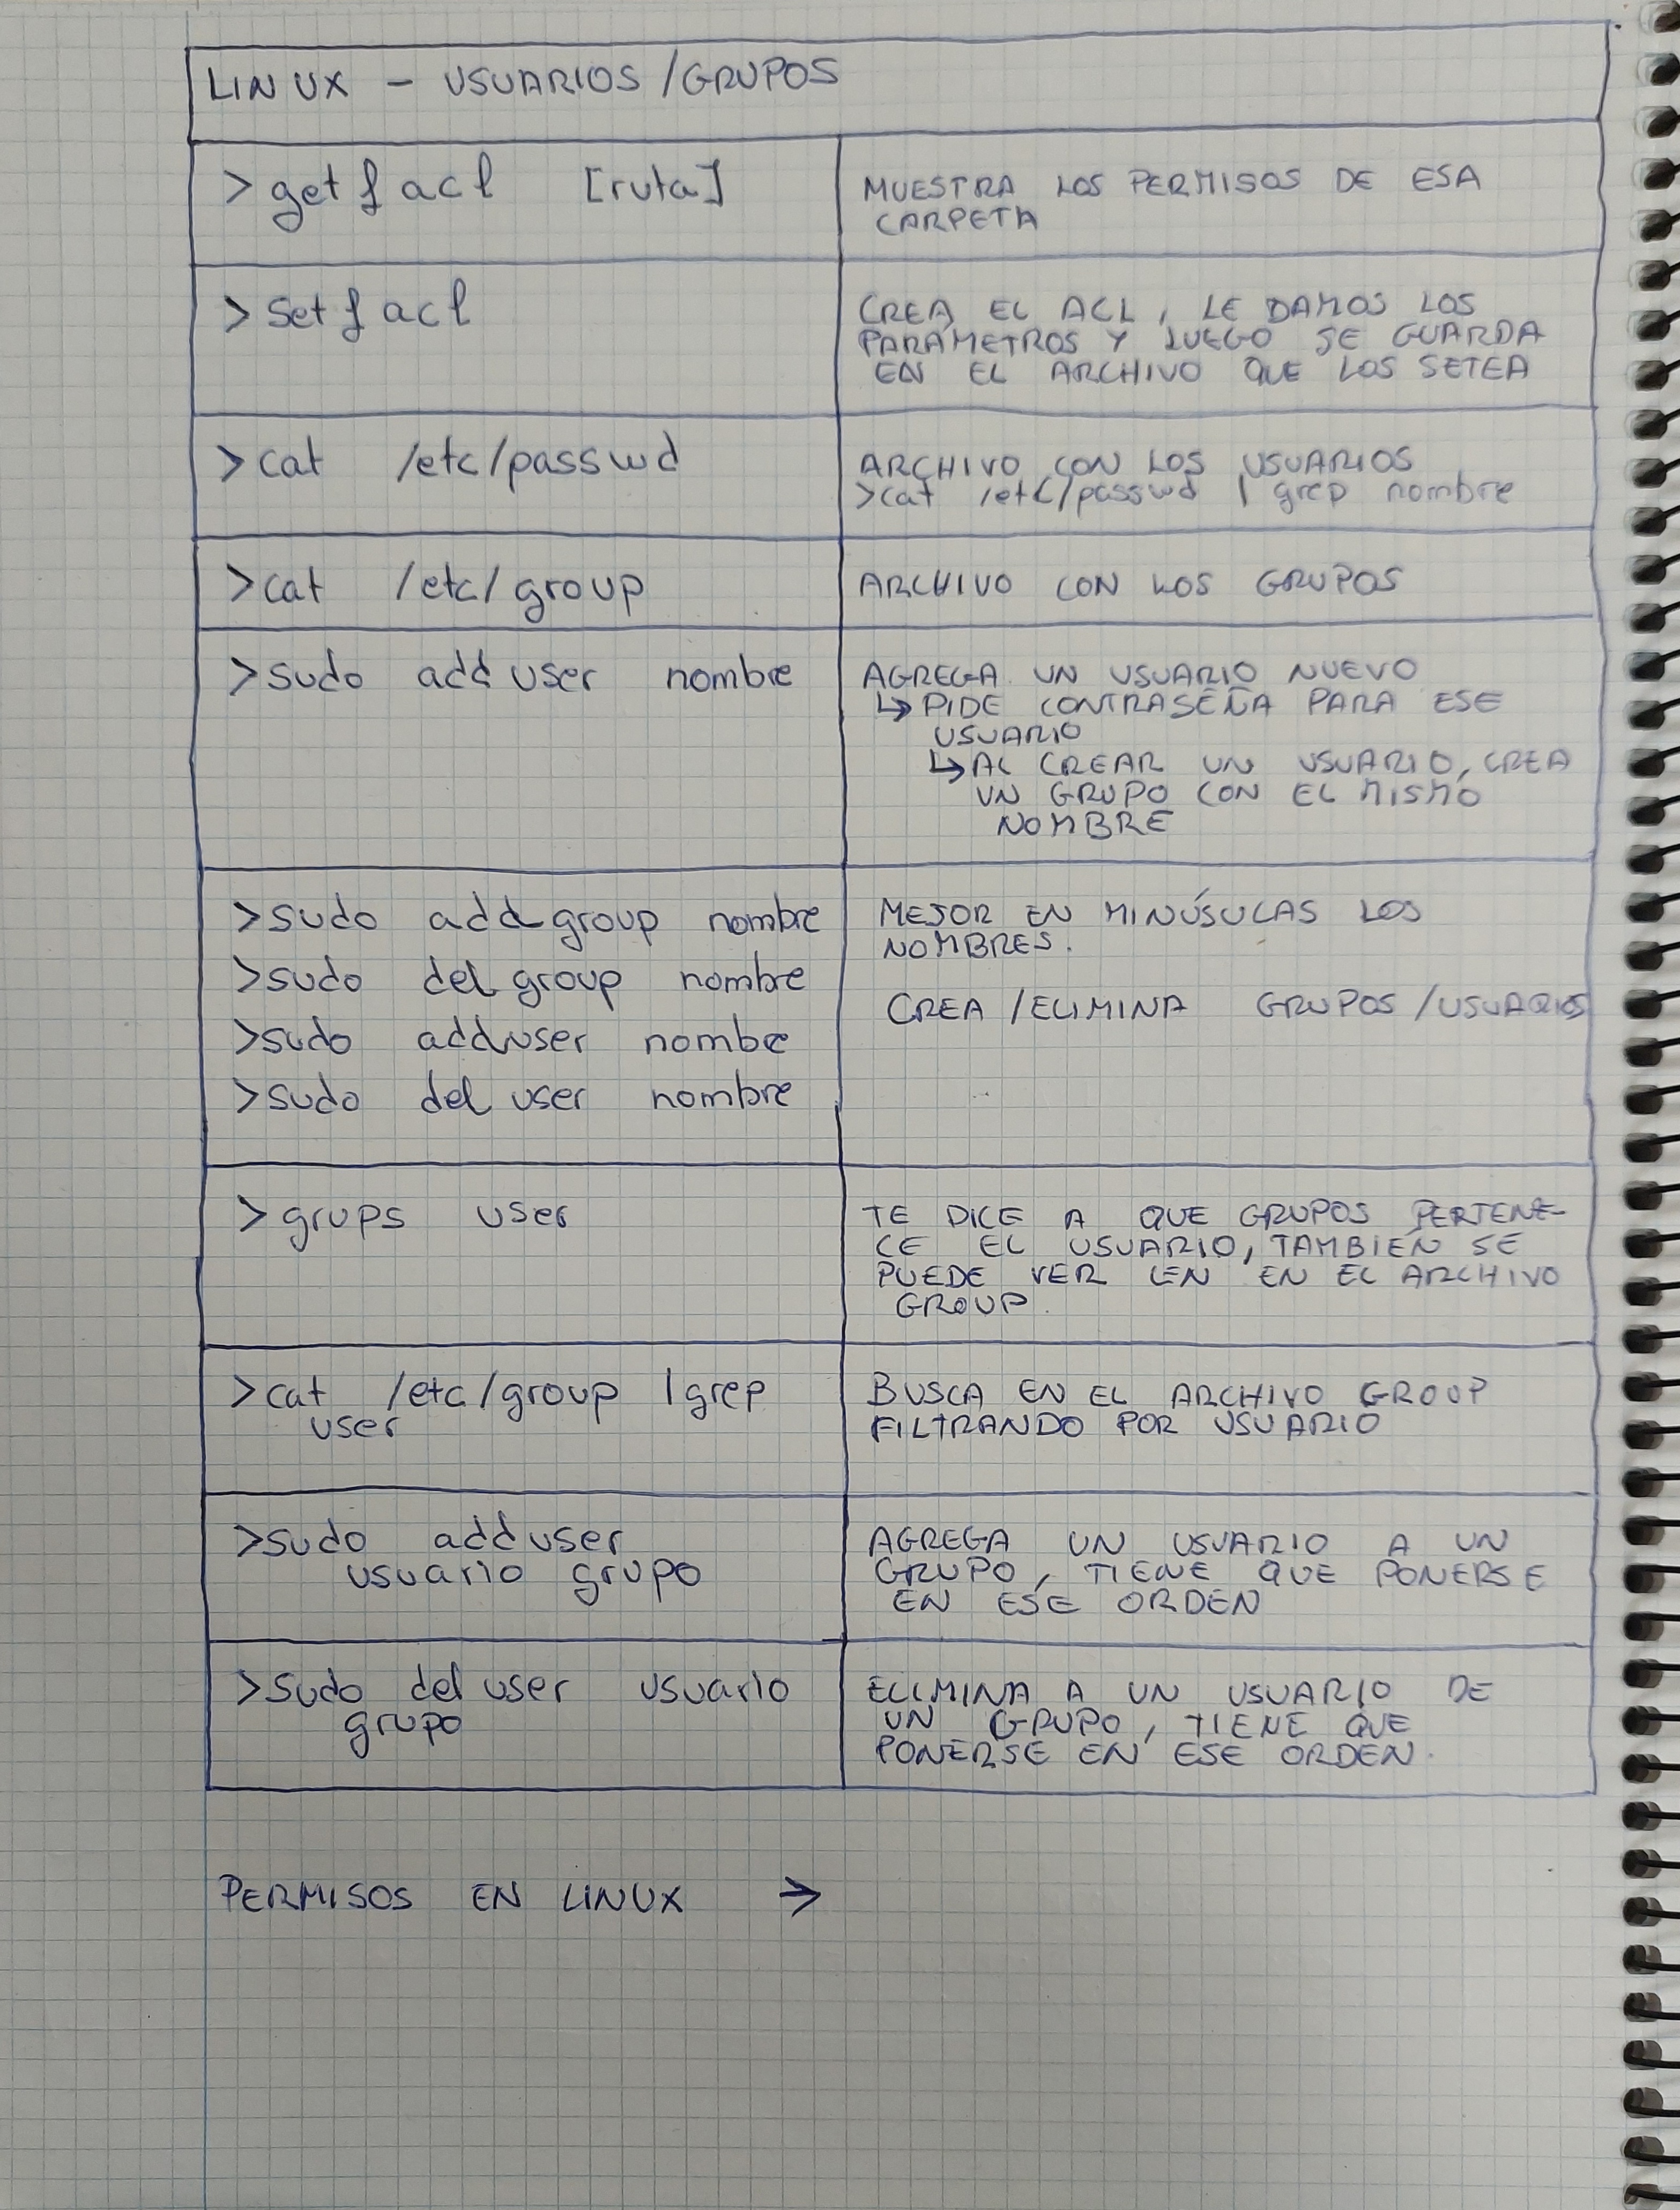 LINUX - USUARIOS/GRUPOS
>getfacl [ruta]
MUESTRA LOS PERMISOS DE ESA
CARPETA
>setfacl
CREA EL ACL, LE DAMOS LOS
PARÁMETROS Y LUEGO SE GUARDA
EN EL ARCHIVO QUE LOS SETEA
>cat /etc/passwd
ARCHIVO CON LOS USUARIOS
>cat /etc/passwd | grep nombre
>cat /etc/group
ARCHIVO CON LOS GRUPOS
>sudo adduser nombre
AGREGA UN USUARIO NUEVO
↳ PIDE CONTRASEÑA PARA ESE
USUARIO
↳ AL CREAR UN USUARIO, CREA
UN GRUPO CON EL MISMO
NOMBRE
>sudo addgroup nombre
>sudo delgroup nombre
>sudo adduser nombre
>sudo deluser nombre
MEJOR EN MINÚSULAS LOS
NOMBRES.
CREA/ELIMINA GRUPOS/USUARIOS
>grups user
TE DICE A QUE GRUPOS PERTENE-
CE EL USUARIO, TAMBIÉN SE
PUEDE VER EN EN EL ARCHIVO
GROUP.
>cat /etc/group |grep
user
BUSCA EN EL ARCHIVO GROUP
FILTRANDO POR USUARIO
>sudo adduser
usuario grupo
AGREGA UN USUARIO A UN
GRUPO, TIENE QUE PONERSE
EN ESE ORDEN
>sudo deluser usuario
grupo
ELIMINA A UN USUARIO DE
UN GRUPO, TIENE QUE
PONERSE EN ESE ORDEN.
PERMISOS EN LINUX →